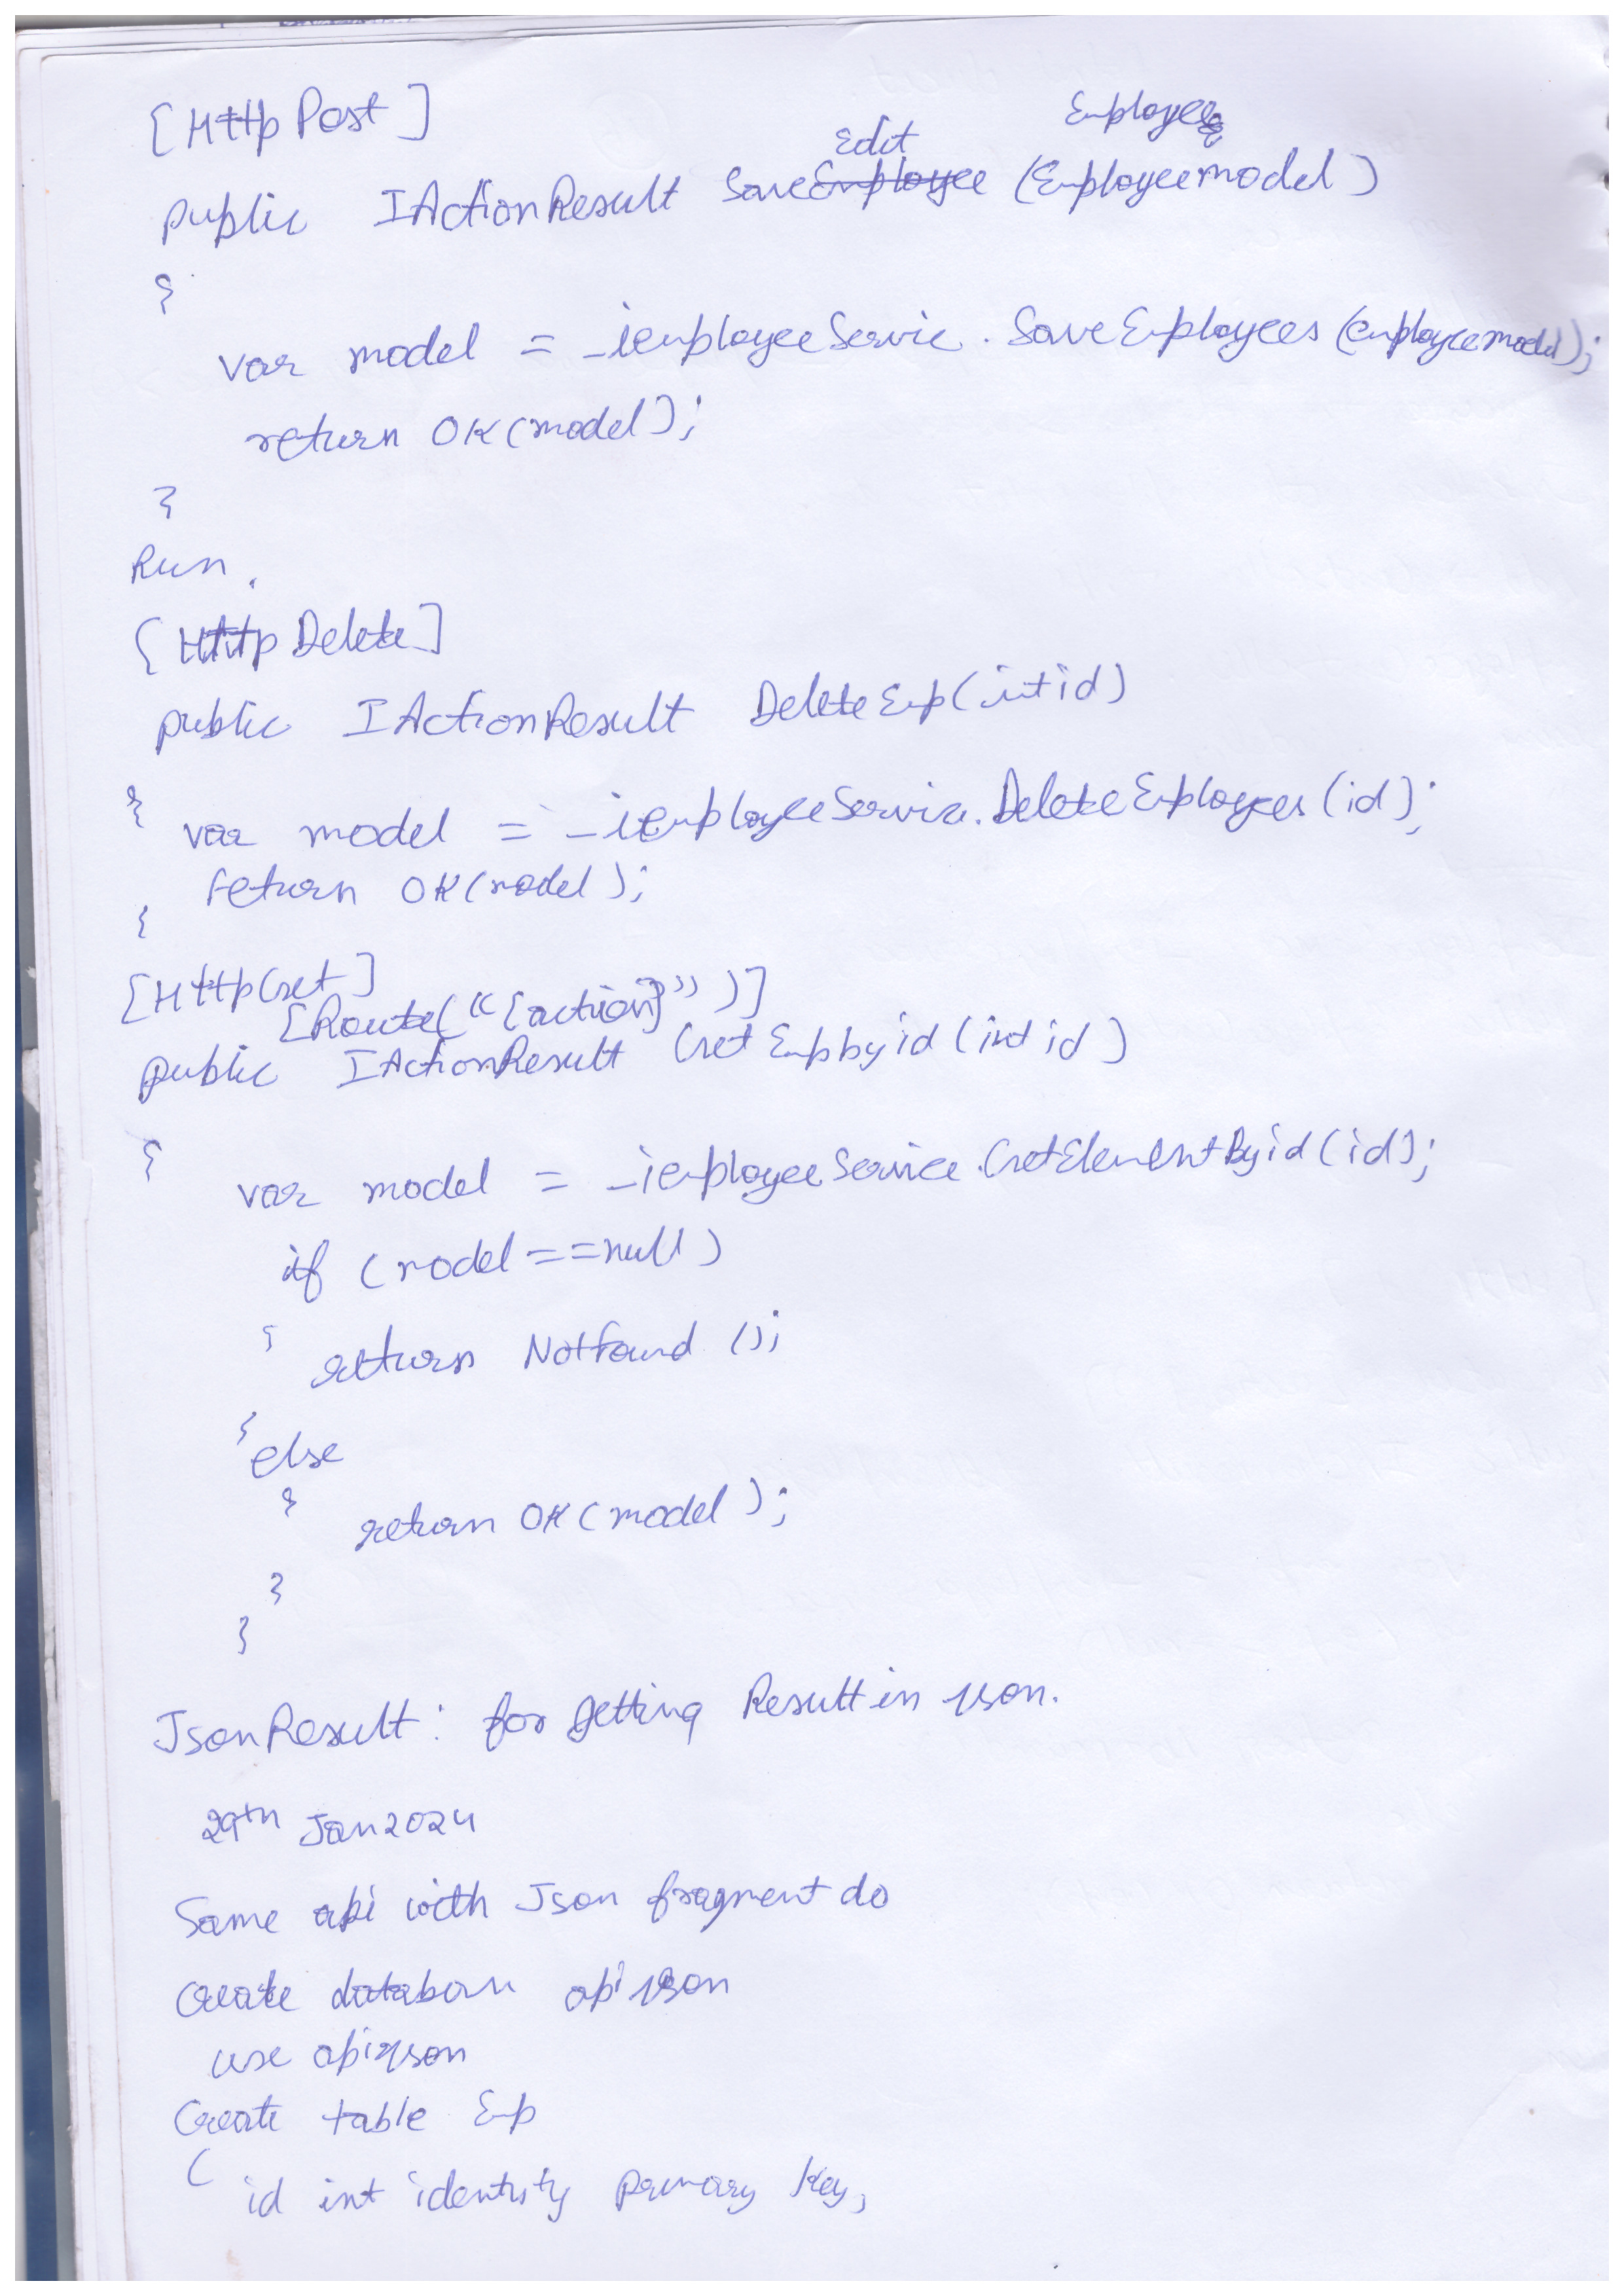 [HttpPost]
Edit Employees
public IActionResult SaveEmployee (Employeemodel)
{
var model = _iemployeeServic. SaveEmployees (employeemodel);
return OK(model);
}
Run.
[HttpDelete]
public IActionResult DeleteEmp(int id)
{ var model = _iemployeeService.DeleteEmployees(id);
return OK(model);
}
[HttpGet]
[Route("{action}")]
public IActionResult GetEmpbyid(int id)
{
var model = _iemployeeService.GetElementByid(id);
if (model==null)
{ return Notfound ();
} else
{ return OK(model);
}
}
JsonResult: for getting Result in json.
29th Jan 2024
Same api with Json fragment do
Create database apijson
use apijson
Create table Emp
( id int identity primary key,